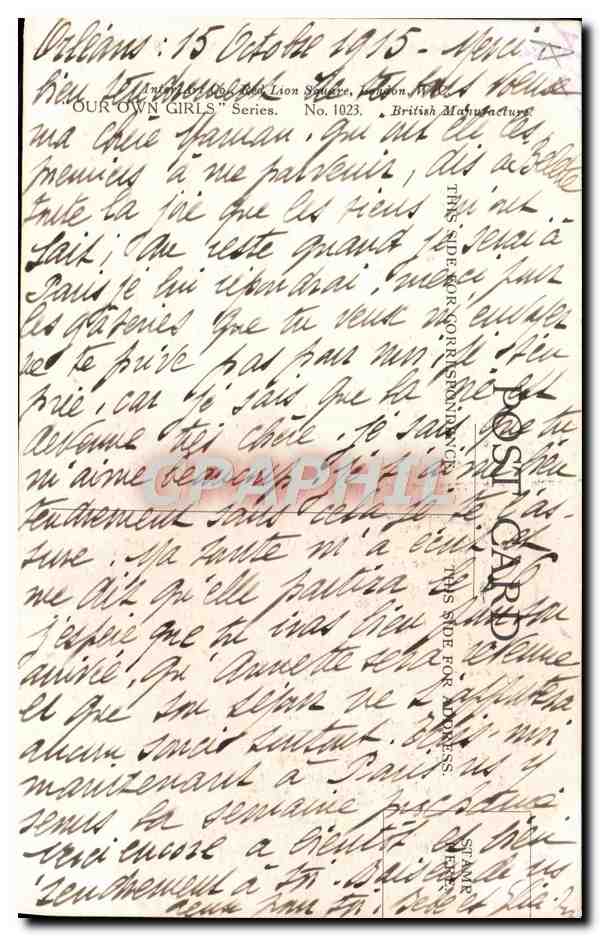 Orléans : 15 Octobre 1915 - Merci
bien tendrement de tes bons voeux
Inter-Art Co., Red Lion Square, London, W.C.
"OUR OWN GIRLS" Series. No. 1023. British Manufacture.
ma chère Maman, qui ont été les
premiers à me parvenir, dis à Bébé
toute la joie que les siens m'ont
fait ; du reste quand je serai à
Paris je lui répondrai, merci pour
les gâteries que tu veux m'envoyer
ne te prive pas pour moi je t'en
prie, car je sais que la vie est
devenue très chère. Je sais que tu
m'aime beaucoup, je t'aime bien
tendrement sans cela je te l'as-
sure. Ma tante m'a écrit et
me dit qu'elle partira le
j'espère que tu iras bien pour son
arrivée, qu'Annette sera revenue
et que son séjour ne t'ajoutera
aucun souci surtout. Ecris-moi
maintenant à Paris ns y
serons la semaine prochaine
Merci encore à bientôt et bien
tendrement à toi. Baisers de ns
deux pour toi, Bébé et
POST CARD
THIS SIDE FOR CORRESPONDENCE.
THIS SIDE FOR ADDRESS.
STAMP
HERE.
CPAPHIL